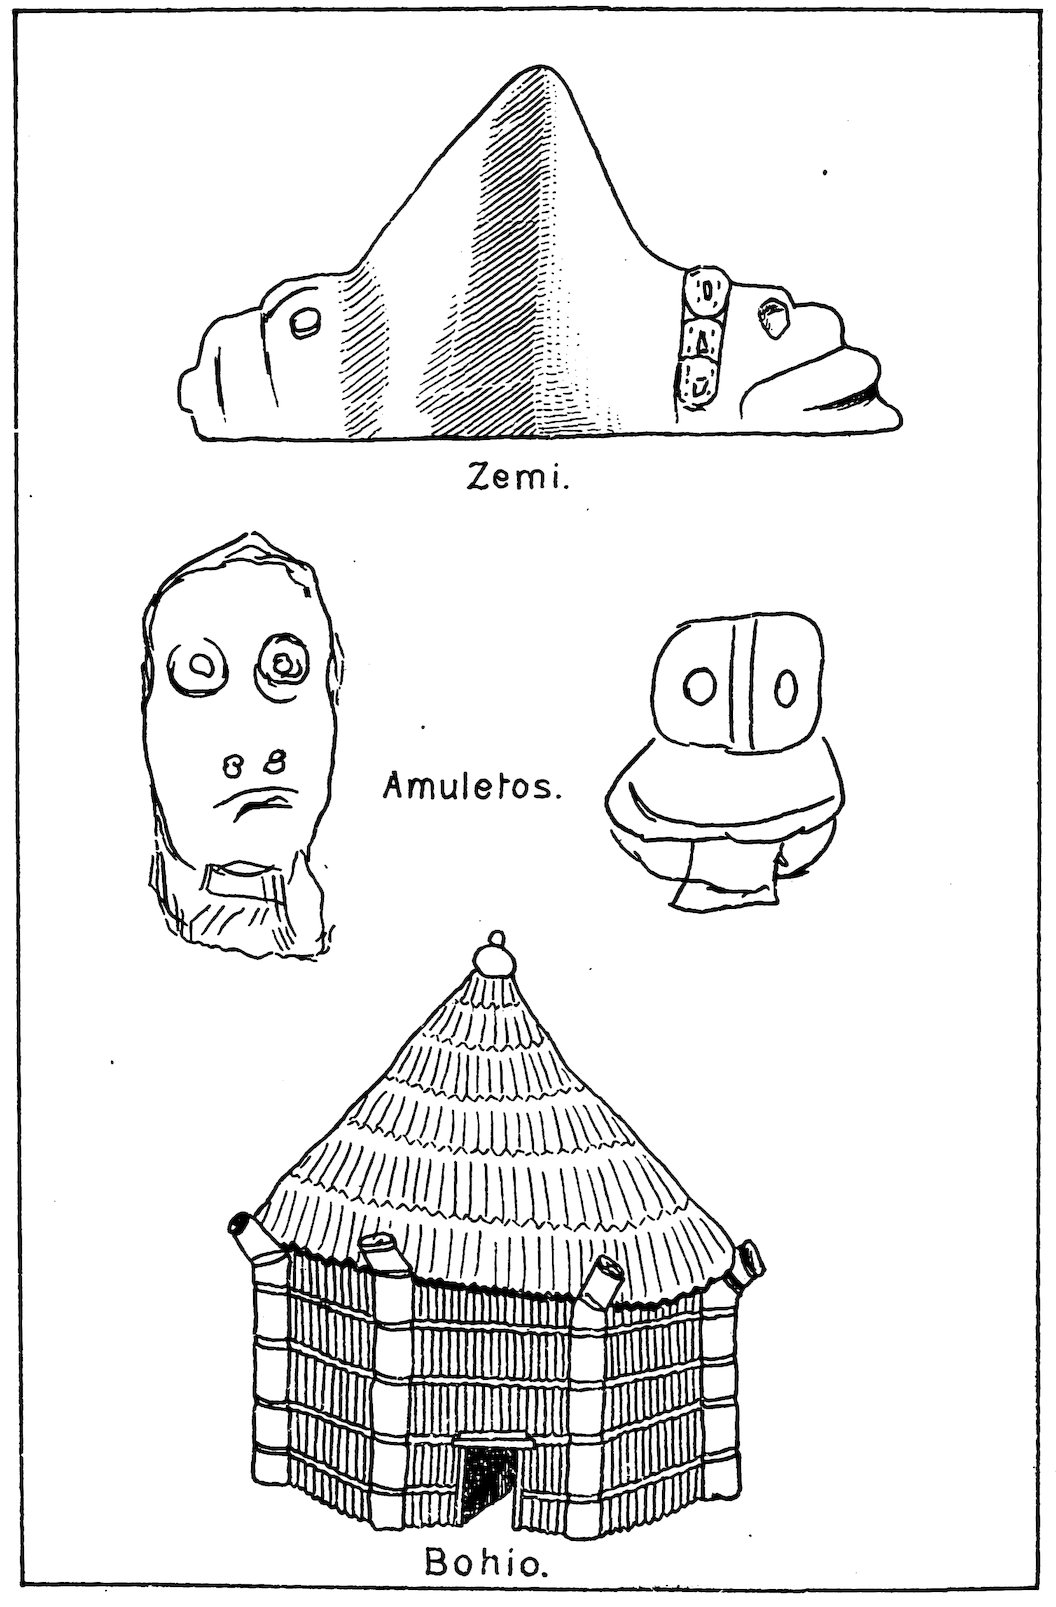 Zemi.
Amuletos.
Bohio.